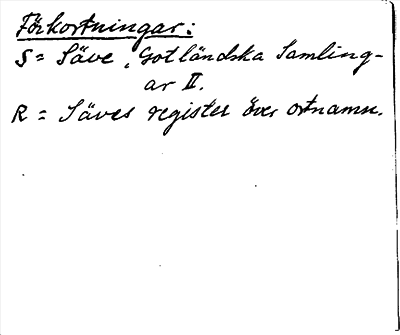 Förkortningar:
S = Säve, Gotländska Samling-
ar II.
R = Säves register över ortnamn.